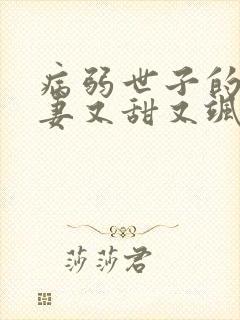 病弱世子的
妻又甜又飒
莎莎君